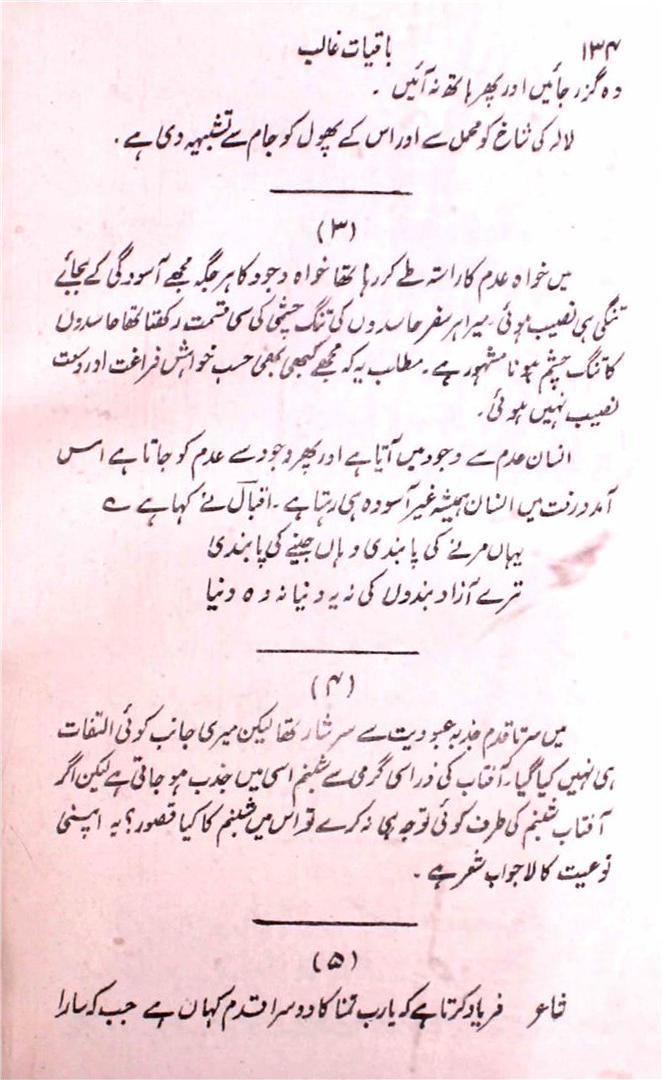 ۱۳۴
باقیات غالب
وہ گزر جائیں اور پھر ہاتھ نہ آئیں ۔
لالہ کی شاخ کو محمل سے اور اس کے پھول کو جام سے تشبیہہ دی ہے ۔
(۳)
میں خواہ عدم کا راستہ طے کر رہا تھا خواہ وجود کا ہر جگہ مجھے آسودگی کے بجائے
تنگی ہی نصیب ہوئی ۔ میرا ہر سفر حاسدوں کی تنگ چشمی کی سی قسمت رکھتا تھا حاسدوں
کا تنگ چشم ہونا مشہور ہے ۔ مطلب یہ کہ مجھے کبھی بھی حسب خواہش فراغت اور وسعت
نصیب نہیں ہوئی ۔
انسان عدم سے وجود میں آتا ہے اور پھر وجود سے عدم کو جاتا ہے اس
آمد و رفت میں انسان ہمیشہ غیر آسودہ ہی رہتا ہے ۔ اقبالؔ نے کہا ہے ؎
یہاں مرنے کی پابندی وہاں جینے کی پابندی
ترے آزاد بندوں کی نہ یہ دنیا نہ وہ دنیا
(۴)
میں سرتا قدم جذبہ عبودیت سے سرشار تھا لیکن میری جانب کوئی التفات
ہی نہیں کیا گیا ۔ آفتاب کی ذرا سی گرمی سے شبنم اسی میں جذب ہو جاتی ہے لیکن اگر
آفتاب شبنم کی طرف کوئی توجہ ہی نہ کرے تو اس میں شبنم کا کیا قصور؟ یہ اپنی
نوعیت کا لاجواب شعر ہے ۔
(۵)
شاعر فریاد کرتا ہے کہ یارب تمنا کا دوسرا قدم کہاں ہے جب کہ سارا